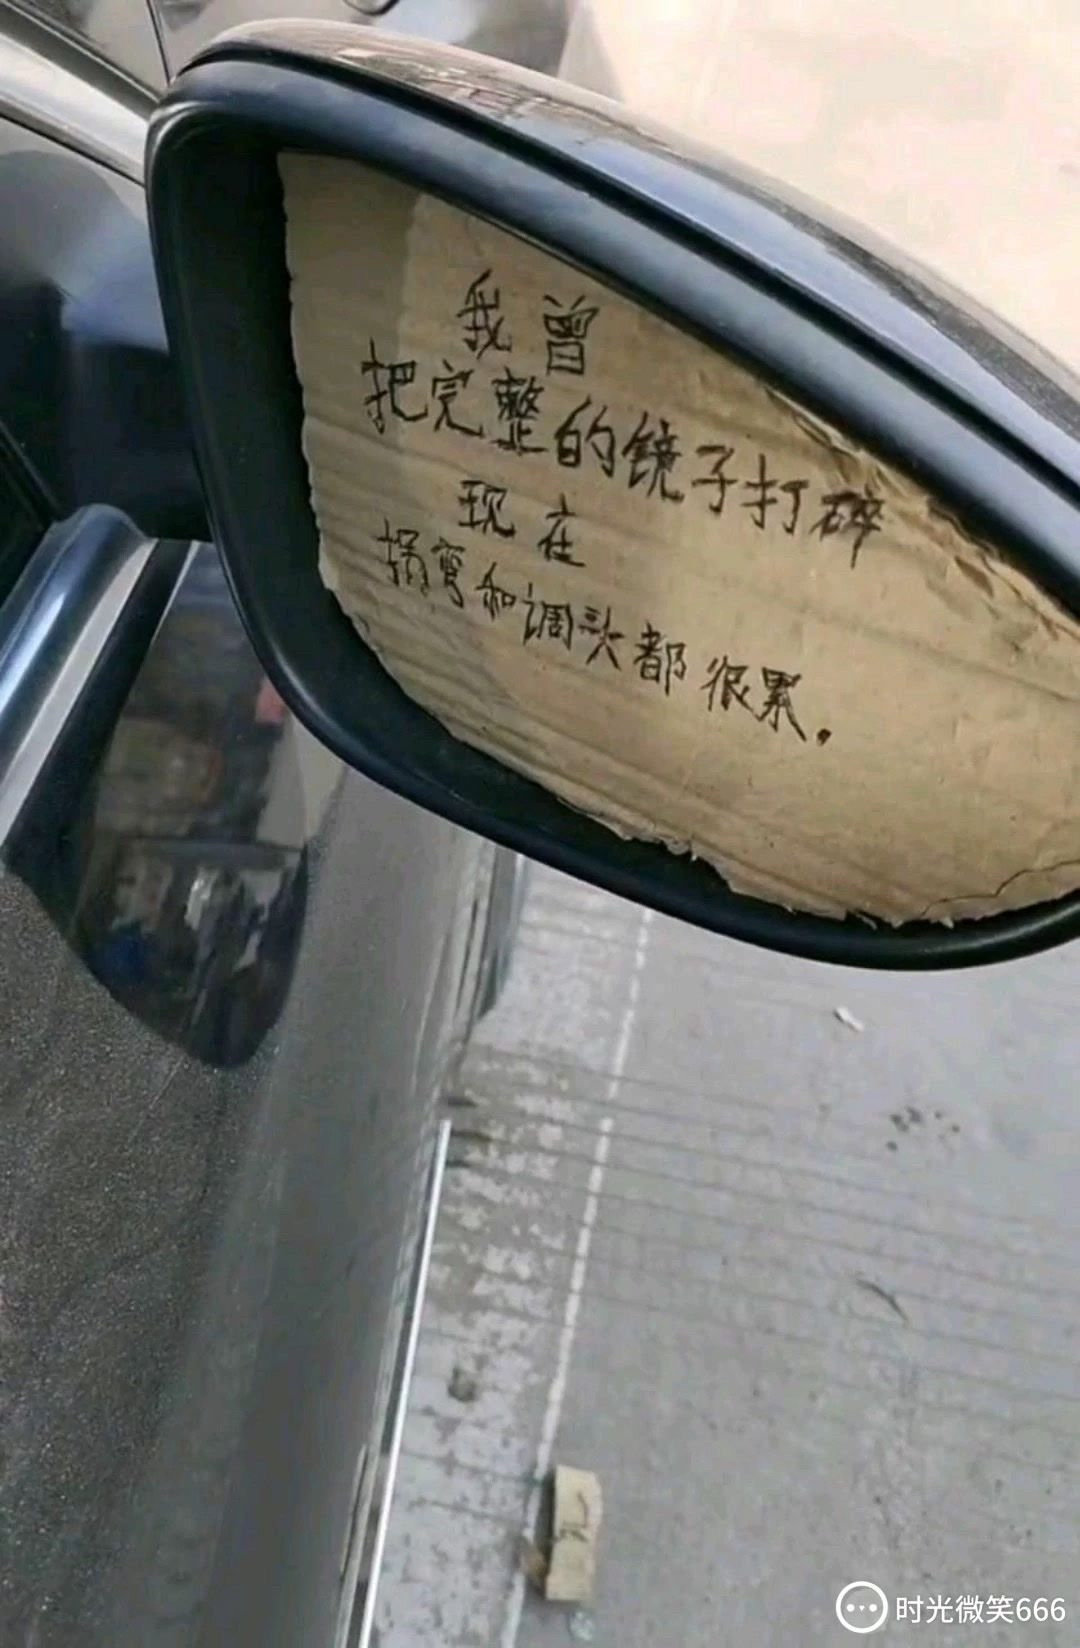 我曾
把完整的镜子打碎
现在
拐弯和调头都很累.
时光微笑666